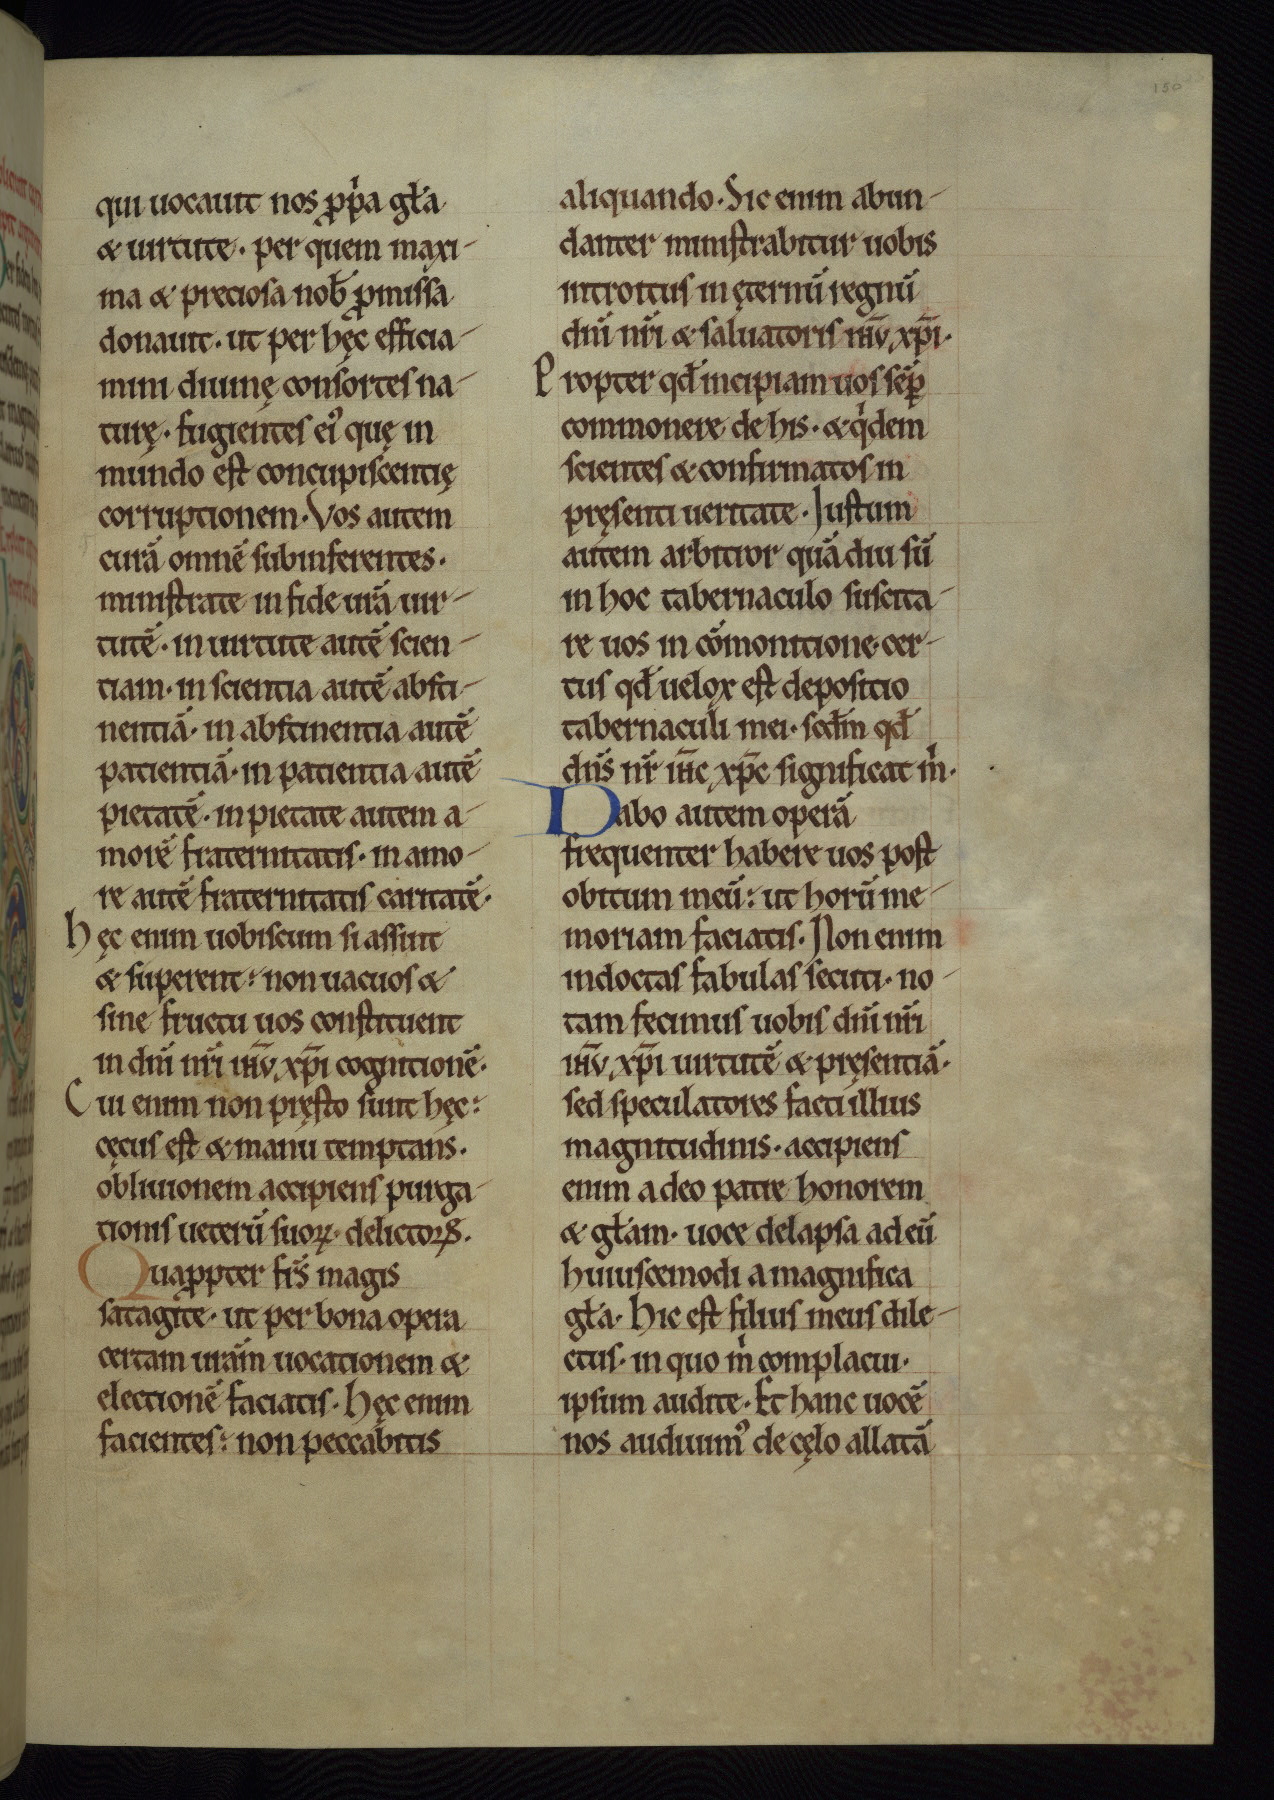 150
qui uocauit nos ꝓp̍a gl̃a
& uirtute· per quem maxi-
ma & preciosa nob̃ ꝓmissa
donauit· ut per hęc efficia-
mini diuinę consortes na-
turę· fugientes eiꝰ quę in
mundo est concupiscentię
corruptionem· Vos autem
curā omnē subinferentes·
ministrate in fide ur̄a uir-
tutē· in uirtute autē scien-
tiam· in scientia autē absti-
nentiā· in abstinentia autē
patientiā· in patientia autē
pietatē· in pietate autem a-
morē fraternitatis· in amo-
re autē fraternitatis caritatē·
hęc enim uobiscum si assint
& superent: non uacuos &
sine fructu uos constituent
in dn̄i nr̄i ih̄v xp̄i cognitionē·
Cui enim non pręsto sunt hęc:
cęcus est & manu temptans·
obliuionem accipiens purga-
tionis ueterū suoꝝ· delictoꝝ·
Quaꝓpter fr̄s magis
satagite· ut per bona opera
certam ur̄am uocationem &
electionē faciatis· Hęc enim
facientes: non peccabitis
aliquando· Sic enim abun-
danter ministrabitur uobis
introitus in ęternū regnū
dn̄i nr̄i & saluatoris ih̄v xp̄i·
Propter qd̄ incipiam uos sēp
commonere de his· & q̍dem
scientes & confirmatos in
pręsenti ueritate· Justum
autem arbitror quādiu sū
in hoc tabernaculo suscita-
re uos in cōmonitione· cer-
tus qd̄ uelox est depositio
tabernaculi mei· scd̄m qd̄
dn̄s nr̄ ih̄c xp̄c significat m̍·
Dabo autem operā
frequenter habere uos post
obitum meū: ut horū me-
moriam faciatis· Non enim
indoctas fabulas secuti· no-
tam fecimus uobis dn̄i nr̄i
ih̄v xp̄i uirtutē & pręsentiā·
sed speculatores facti illius
magnitudinis· accipiens
enim a deo patre honorem
& gl̃am· uoce delapsa ad eū
huiuscemodi a magnifica
gl̃a· Hic est filius meus dile-
ctus· in quo m̍ complacui·
ipsum audite· Et hanc uocē
nos audiuimꝰ de cęlo allatā